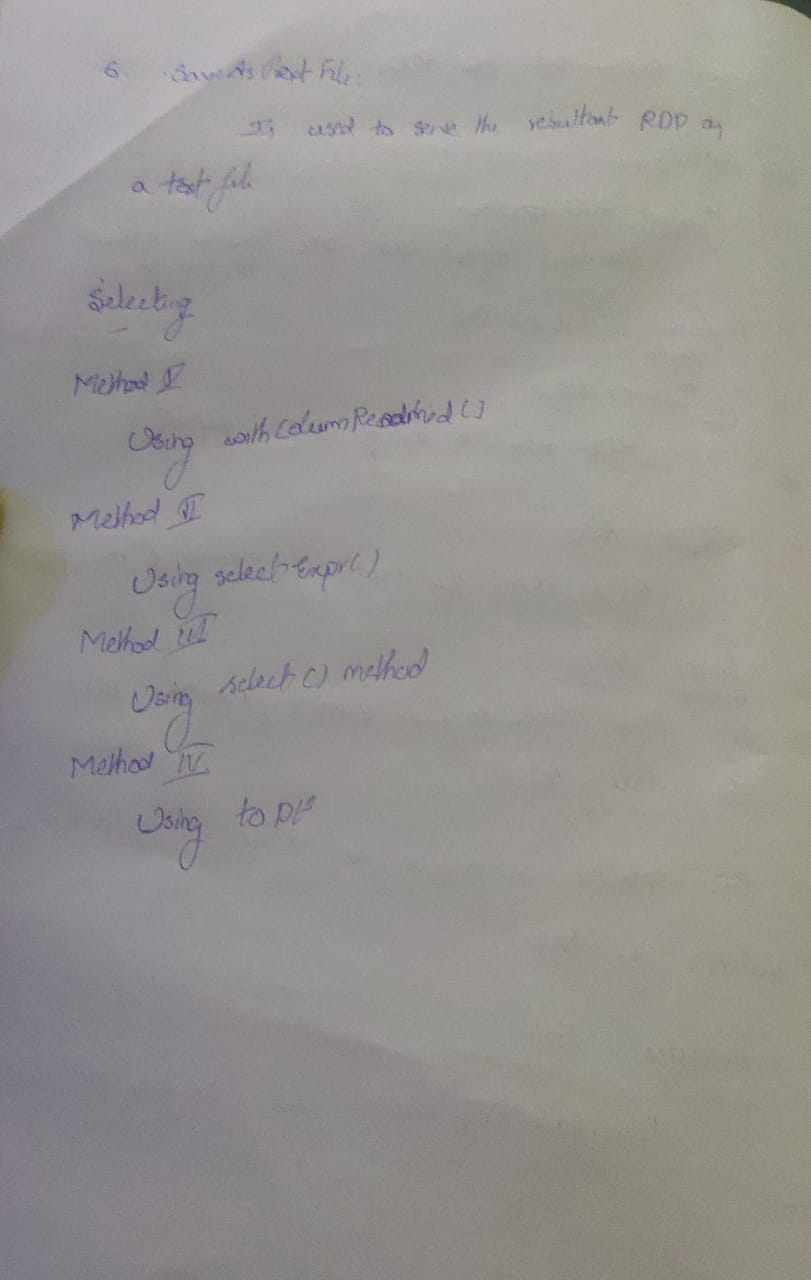 6. Save As Text File:
It is used to serve the resultant RDD as
a text file
Selecting
Method I
Using withColumnRenamed()
Method II
Using selectExpr()
Method III
Using select() method
Method IV
Using to DF